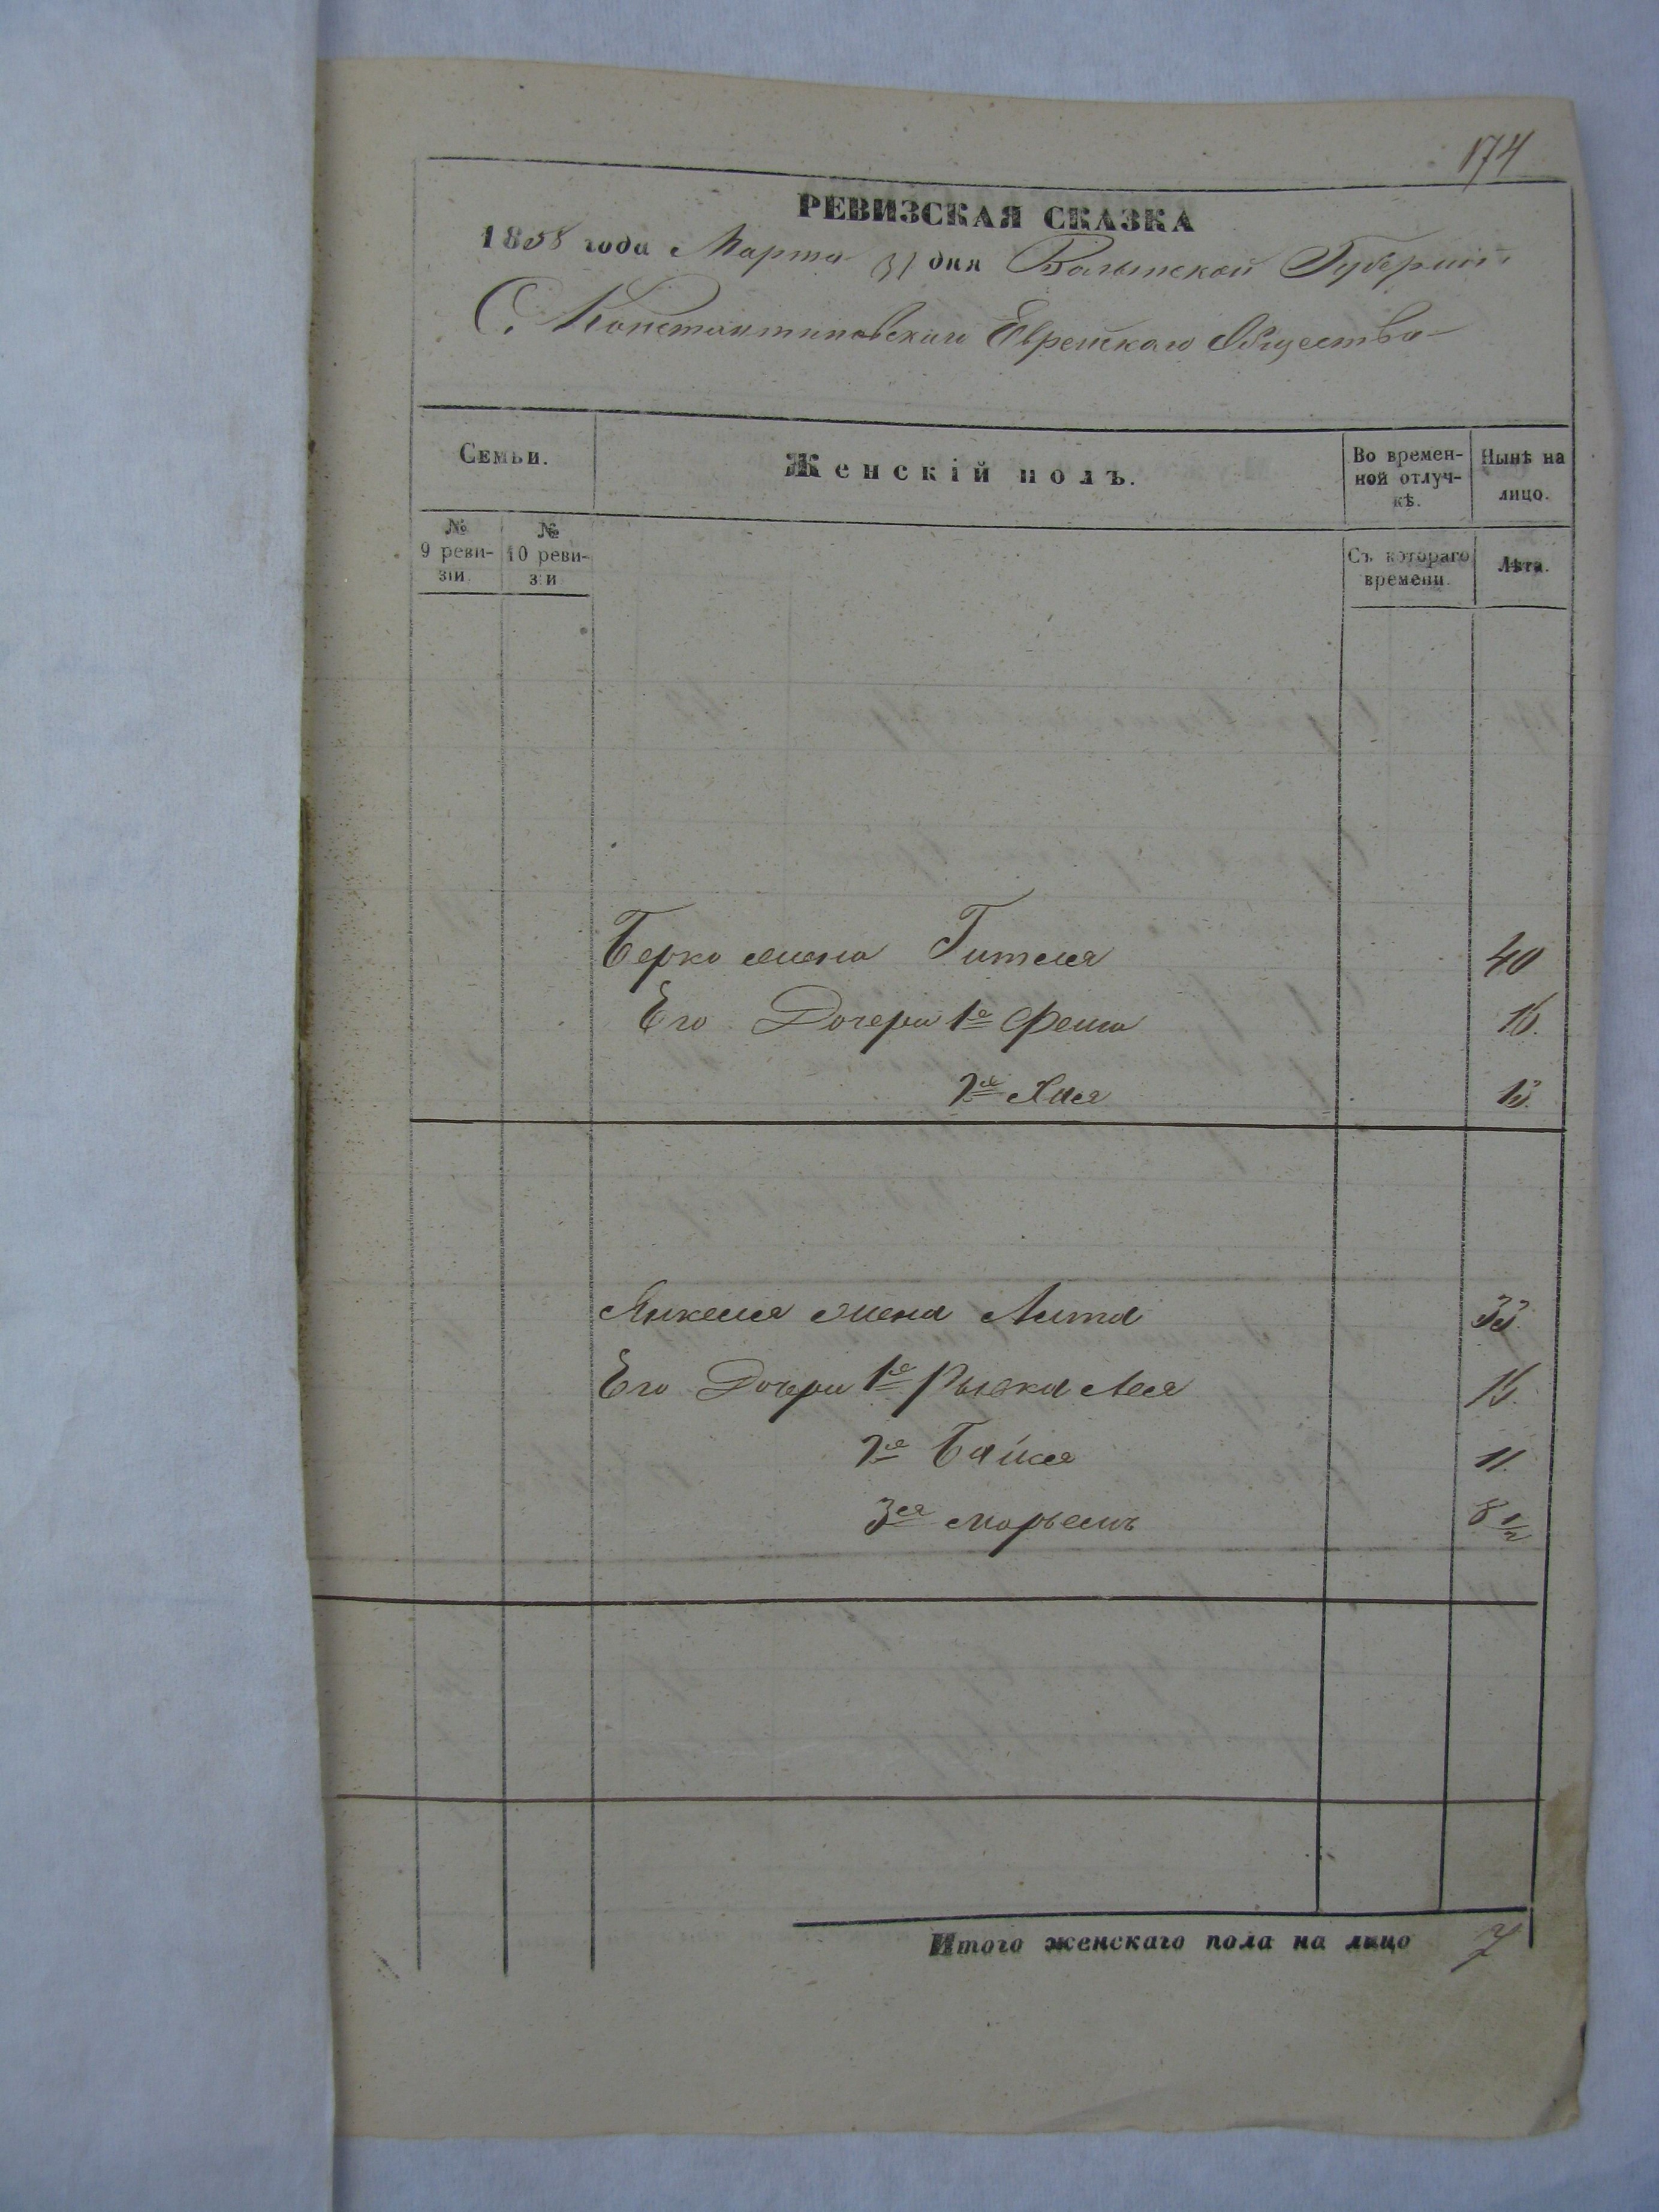 174
РЕВИЗСКАЯ СКАЗКА
1858 года Марта 31 дня Волынской Губерніи
С. Константиновскаго Еврейскаго Общества
Семьи.
Женскій полъ.
Во времен-
ной отлуч-
кѣ.
Нынѣ на
лицо.
№
9 реви-
зіи.
№
10 реви-
зіи
Съ котораго
времени.
Лѣта.
Берко жена Гителя 40
Его Дочери 1я Фейга 16.
2я Хая 13.
Янкеля жена Лита 33.
Его Дочери 1я Рывка Лея 15.
2я Байля 11.
3ея Марьемъ 8 1/2
Итого женскаго пола на лицо 7